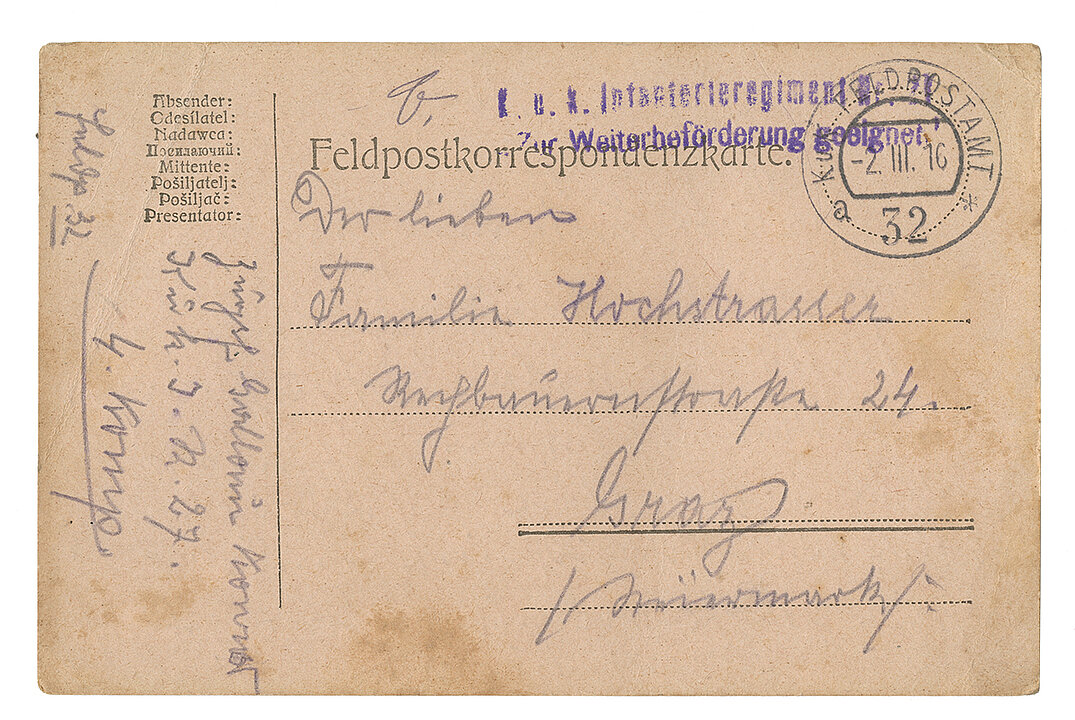 Absender:
Odesílatel:
Nadawca:
Посилаючий:
Mittente:
Pošiljatelj:
Pošiljač:
Presentator:
K. u. k. Infanterieregiment N
Zur Weiterbeförderung geeignet!
K.u.K. FELDPOSTAMT
-2. III. 16
a 32 *
Feldpostkorrespondenzkarte.
Der lieben
Familie Hochstrasser
Rechbauerstraße 24.
Graz
/: Steiermark :/
K.u.K. I. R. 27.
4. Komp.
32